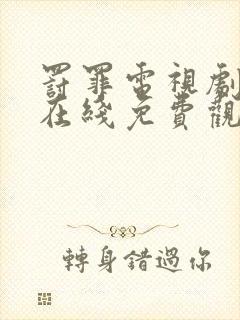 罸罪電視劇
在綫免費觀
轉身錯過你